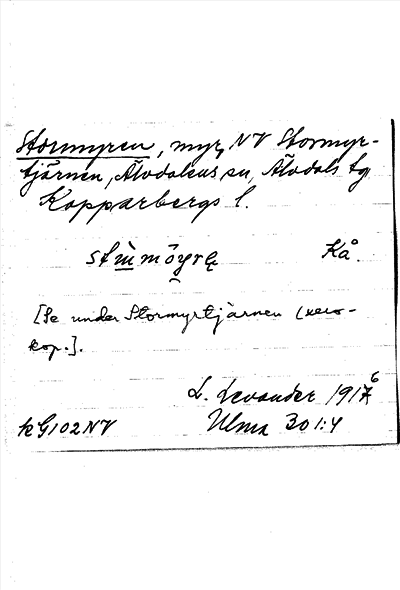 Stormyren, myr, NV Stormyr-
tjärnen, Älvdalens sn, Älvdals tg
Kopparbergs l.
Kå.
[Se under Stormyrtjärnen (xero-
kop.].
L. Levander 1917 6
kG102NV Ulma 301:4